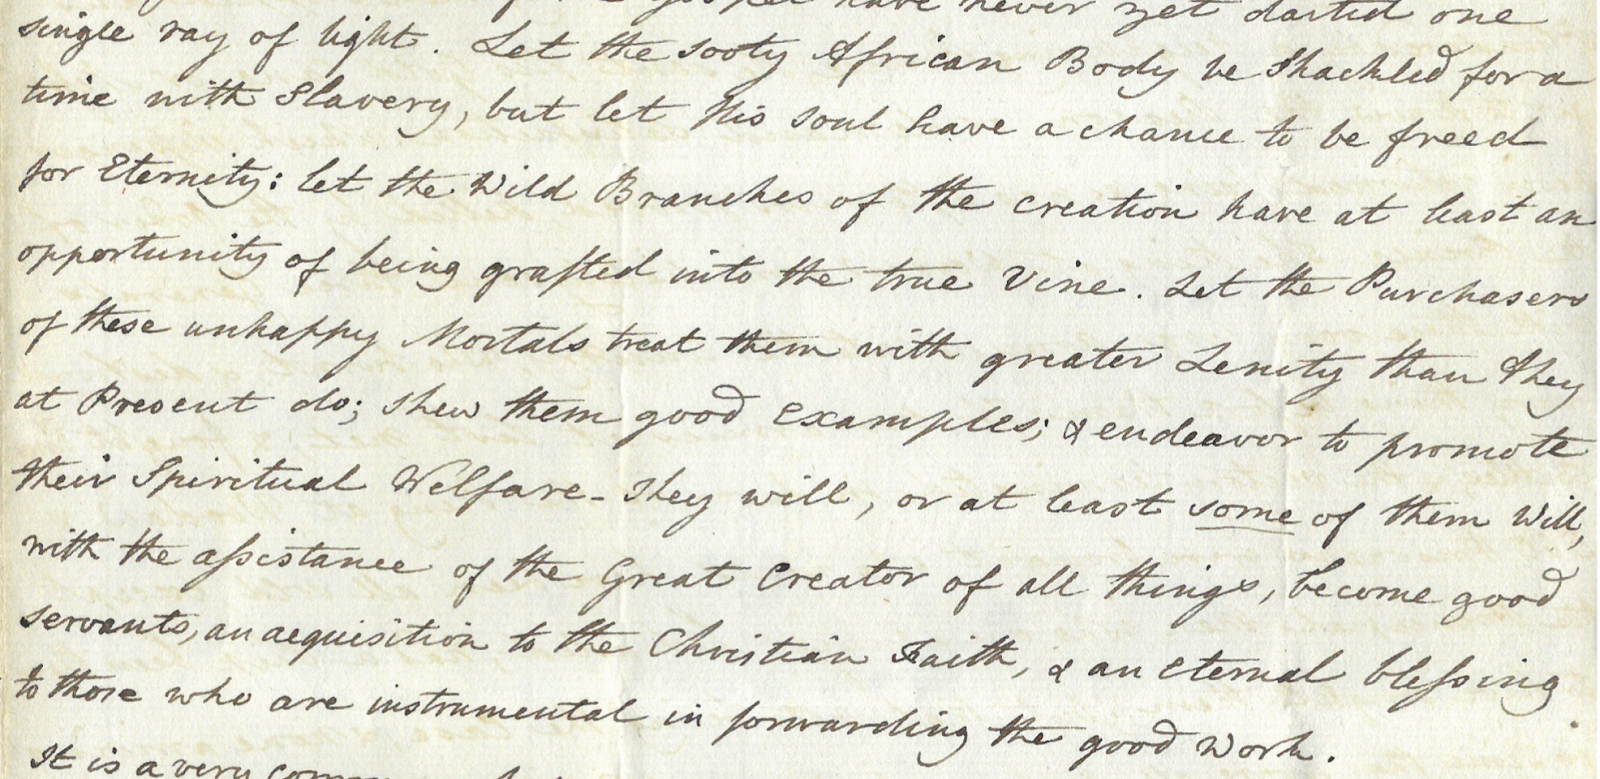 Gospel have never yet darted one
single ray of light. Let the sooty African Body be Shackled for a
time with Slavery, but let his soul have a chance to be freed
for Eternity: let the Wild Branches of the creation have at least an
opportunity of being grafted into the true Vine. Let the Purchasers
of these unhappy Mortals treat them with greater Lenity than they
at Present do; shew them good examples; & endeavor to promote
their Spiritual Welfare - They will, or at least some of them Will,
with the aſsistance of the Great Creator of all things, become good
servants, an acquisition to the Christian Faith, & an eternal bleſsing
to those who are instrumental in forwarding the good work.
It is a very